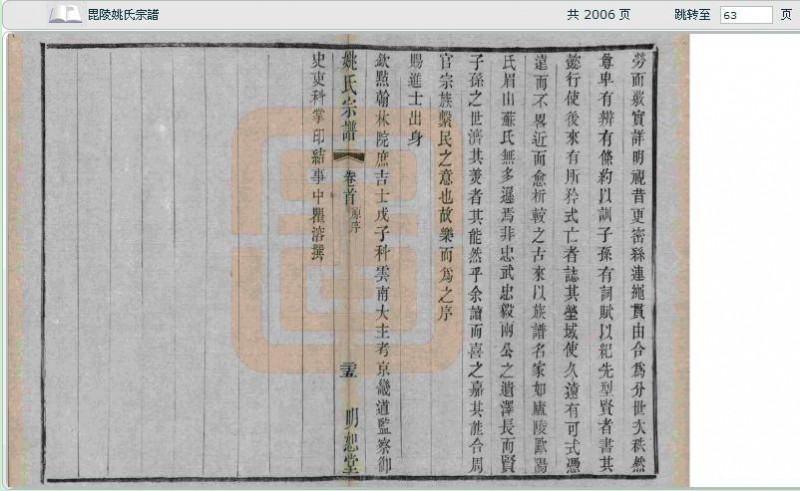 毘陵姚氏宗譜
共 2006 页
跳转至 63 页
勞而嚴實詳明視昔更密絲連繩貫由合為分世次秩然
尊卑有辨有條約以訓子孫有詞賦以紀先型賢者書其
懿行使後來有所矜式亡者誌其塋域使久遠有可式憑
遠而不畧近而愈析較之古來以族譜名家如廬陵歐陽
氏眉山蘇氏無多遜焉非忠武忠毅兩公之遺澤長而賢
子孫之世濟其美者其能然乎余讀而喜之嘉其能合周
官宗族繫民之意也故樂而為之序
賜進士出身
欽點翰林院庶吉士戊子科雲南大主考京畿道監察御
姚氏宗譜 卷首 原序 明恕堂
史吏科掌印給事中瞿溶撰